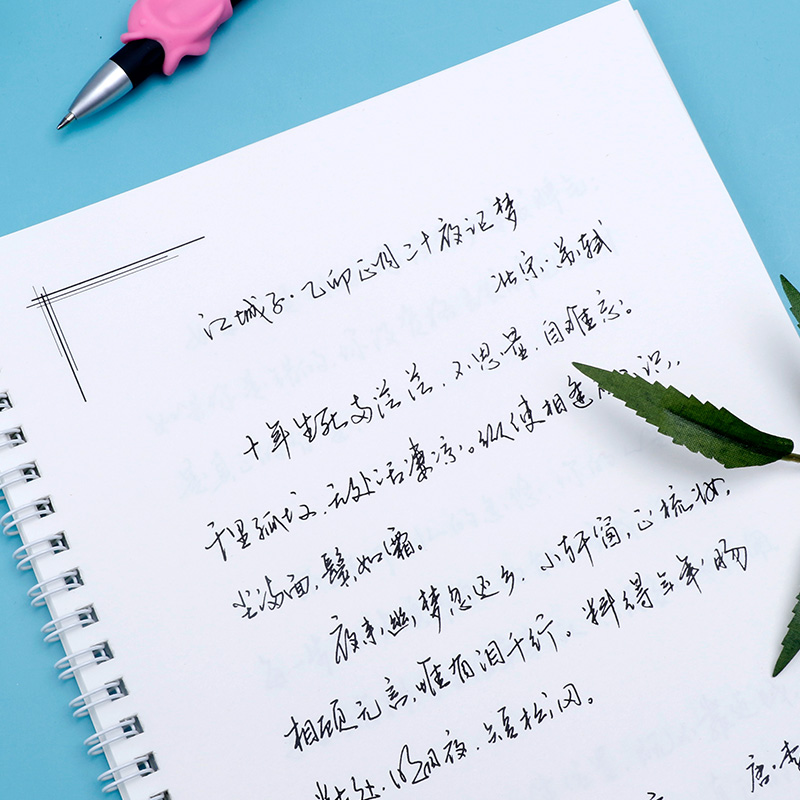 江城子·乙卯正月二十夜记梦
北宋·苏轼
十年生死两茫茫，不思量，自难忘。
千里孤坟，无处话凄凉。纵使相逢应不识，
尘满面，鬓如霜。
夜来幽梦忽还乡，小轩窗，正梳妆，
相顾无言，惟有泪千行。料得年年肠
断处，明月夜，短松冈。
唐·李